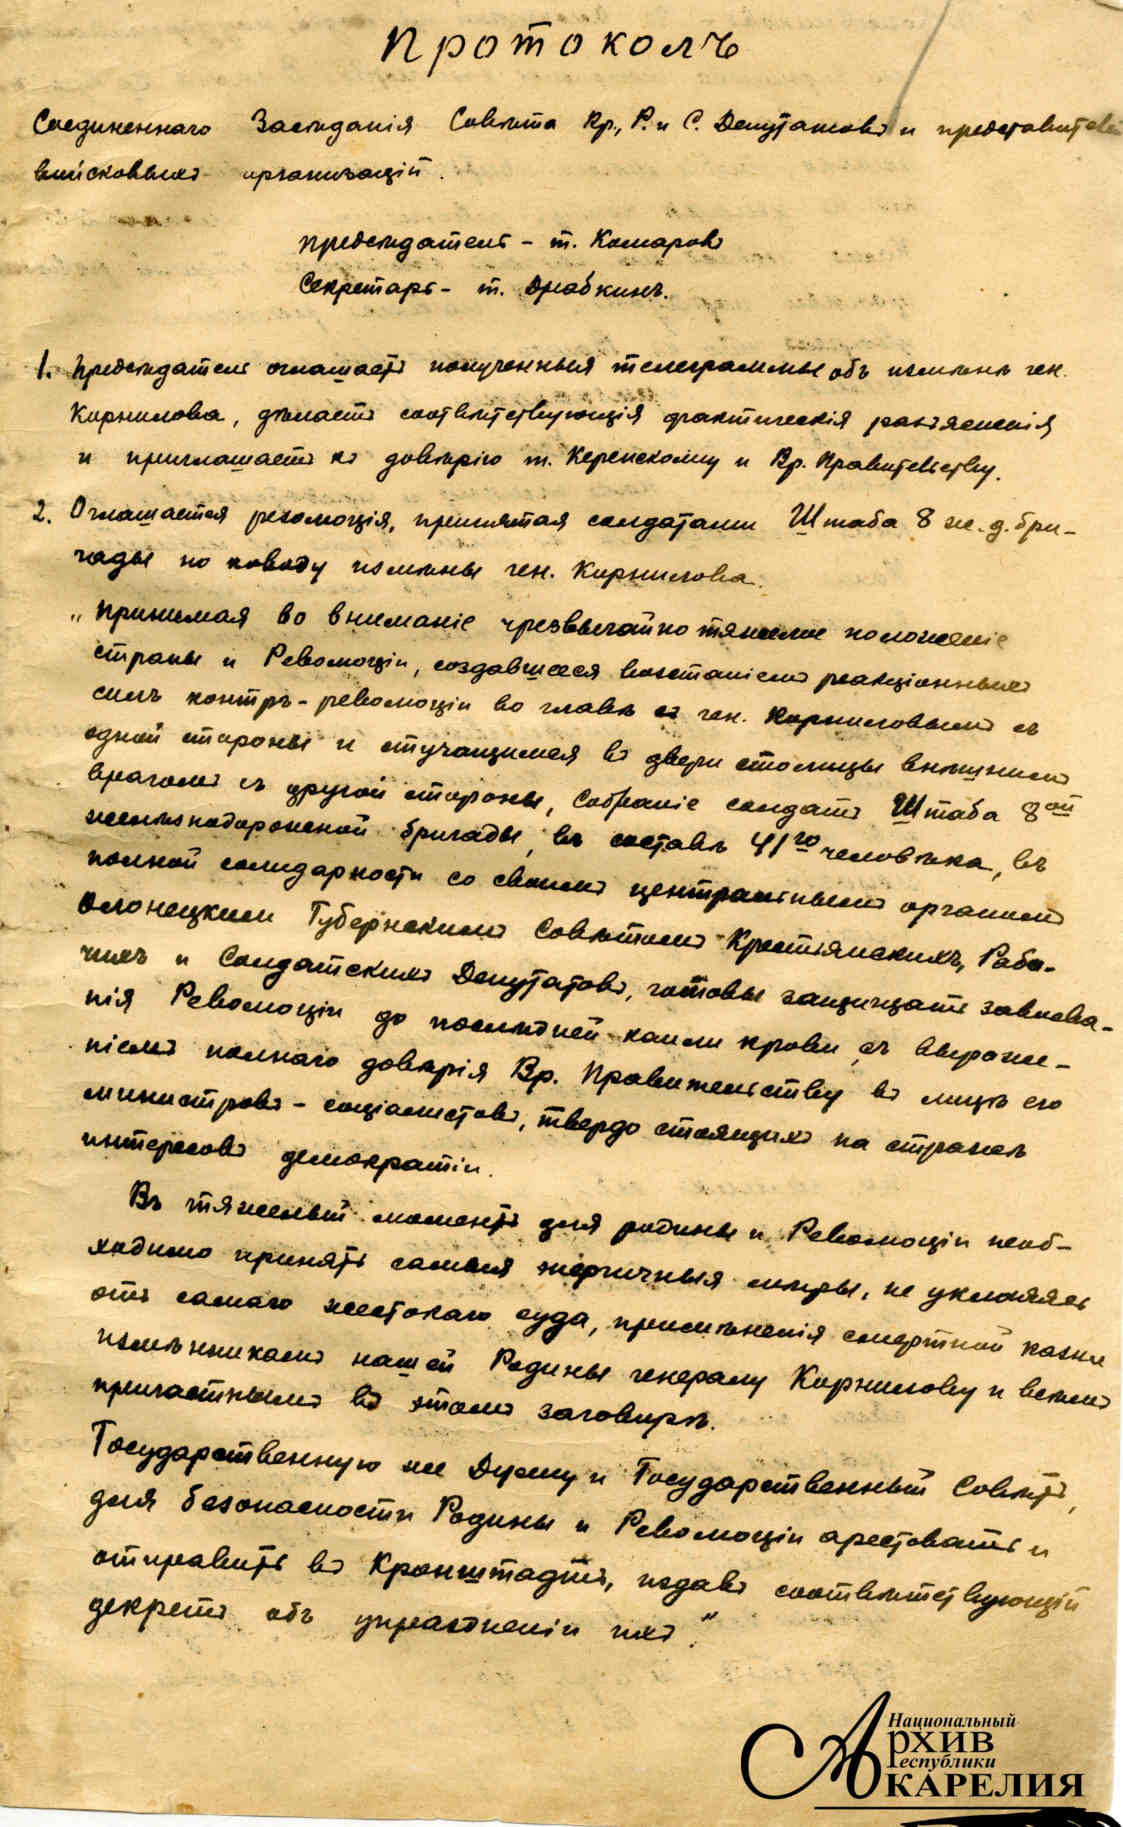 Протоколъ
Соединеннаго Засѣданія Совѣта Кр., Р. и С. Депутатовъ и представителей
войсковыхъ организацій.
Предсѣдатель - т. Комаровъ
Секретарь - т. Драбкинъ.
1. Предсѣдатель оглашаетъ полученныя телеграммы объ измѣнѣ ген.
Корнилова, дѣлаетъ соотвѣтствующія фактическія разъясненія
и приглашаетъ къ довѣрію т. Керенскому и Вр. Правительству.
2. Оглашается резолюція, принятая солдатами Штаба 8 ж.д. бри-
гады по поводу измѣны ген. Корнилова.
„Принимая во вниманіе чрезвычайно тяжелое положеніе
страны и Революціи, создавшееся возстаніемъ реакціонныхъ
силъ контръ-революціи во главѣ съ ген. Корниловымъ съ
одной стороны и стучащимся въ двери столицы внѣшнимъ
врагомъ съ другой стороны, Собраніе солдатъ Штаба 8ой
желѣзнодорожной бригады, въ составѣ 41го человѣка, въ
полной солидарности со своимъ центральнымъ органомъ
Олонецкимъ Губернскимъ Совѣтомъ Крестьянскихъ, Рабо-
чихъ и Солдатскихъ Депутатовъ, готовы защищать завоева-
нія Революціи до послѣдней капли крови, съ выраже-
ніемъ полнаго довѣрія Вр. Правительству въ лицѣ его
министровъ - соціалистовъ, твердо стоящихъ на стражѣ
интересовъ демократіи.
Въ тяжелый моментъ для родины и Революціи необ-
ходимо принять самыя энергичныя мѣры, не уклоняясь
отъ самаго жестокаго суда, примѣненія смертной казни
измѣнникамъ нашей Родины генералу Корнилову и всѣмъ
причастнымъ въ этомъ заговорѣ.
Государственную же Думу и Государственный Совѣтъ,
для безопасности Родины и Революціи арестовать и
отправить въ Кронштадтъ, издавъ соотвѣтствующій
декретъ объ упраздненіи ихъ."
Национальный
Архив
Республики
КАРЕЛИЯ